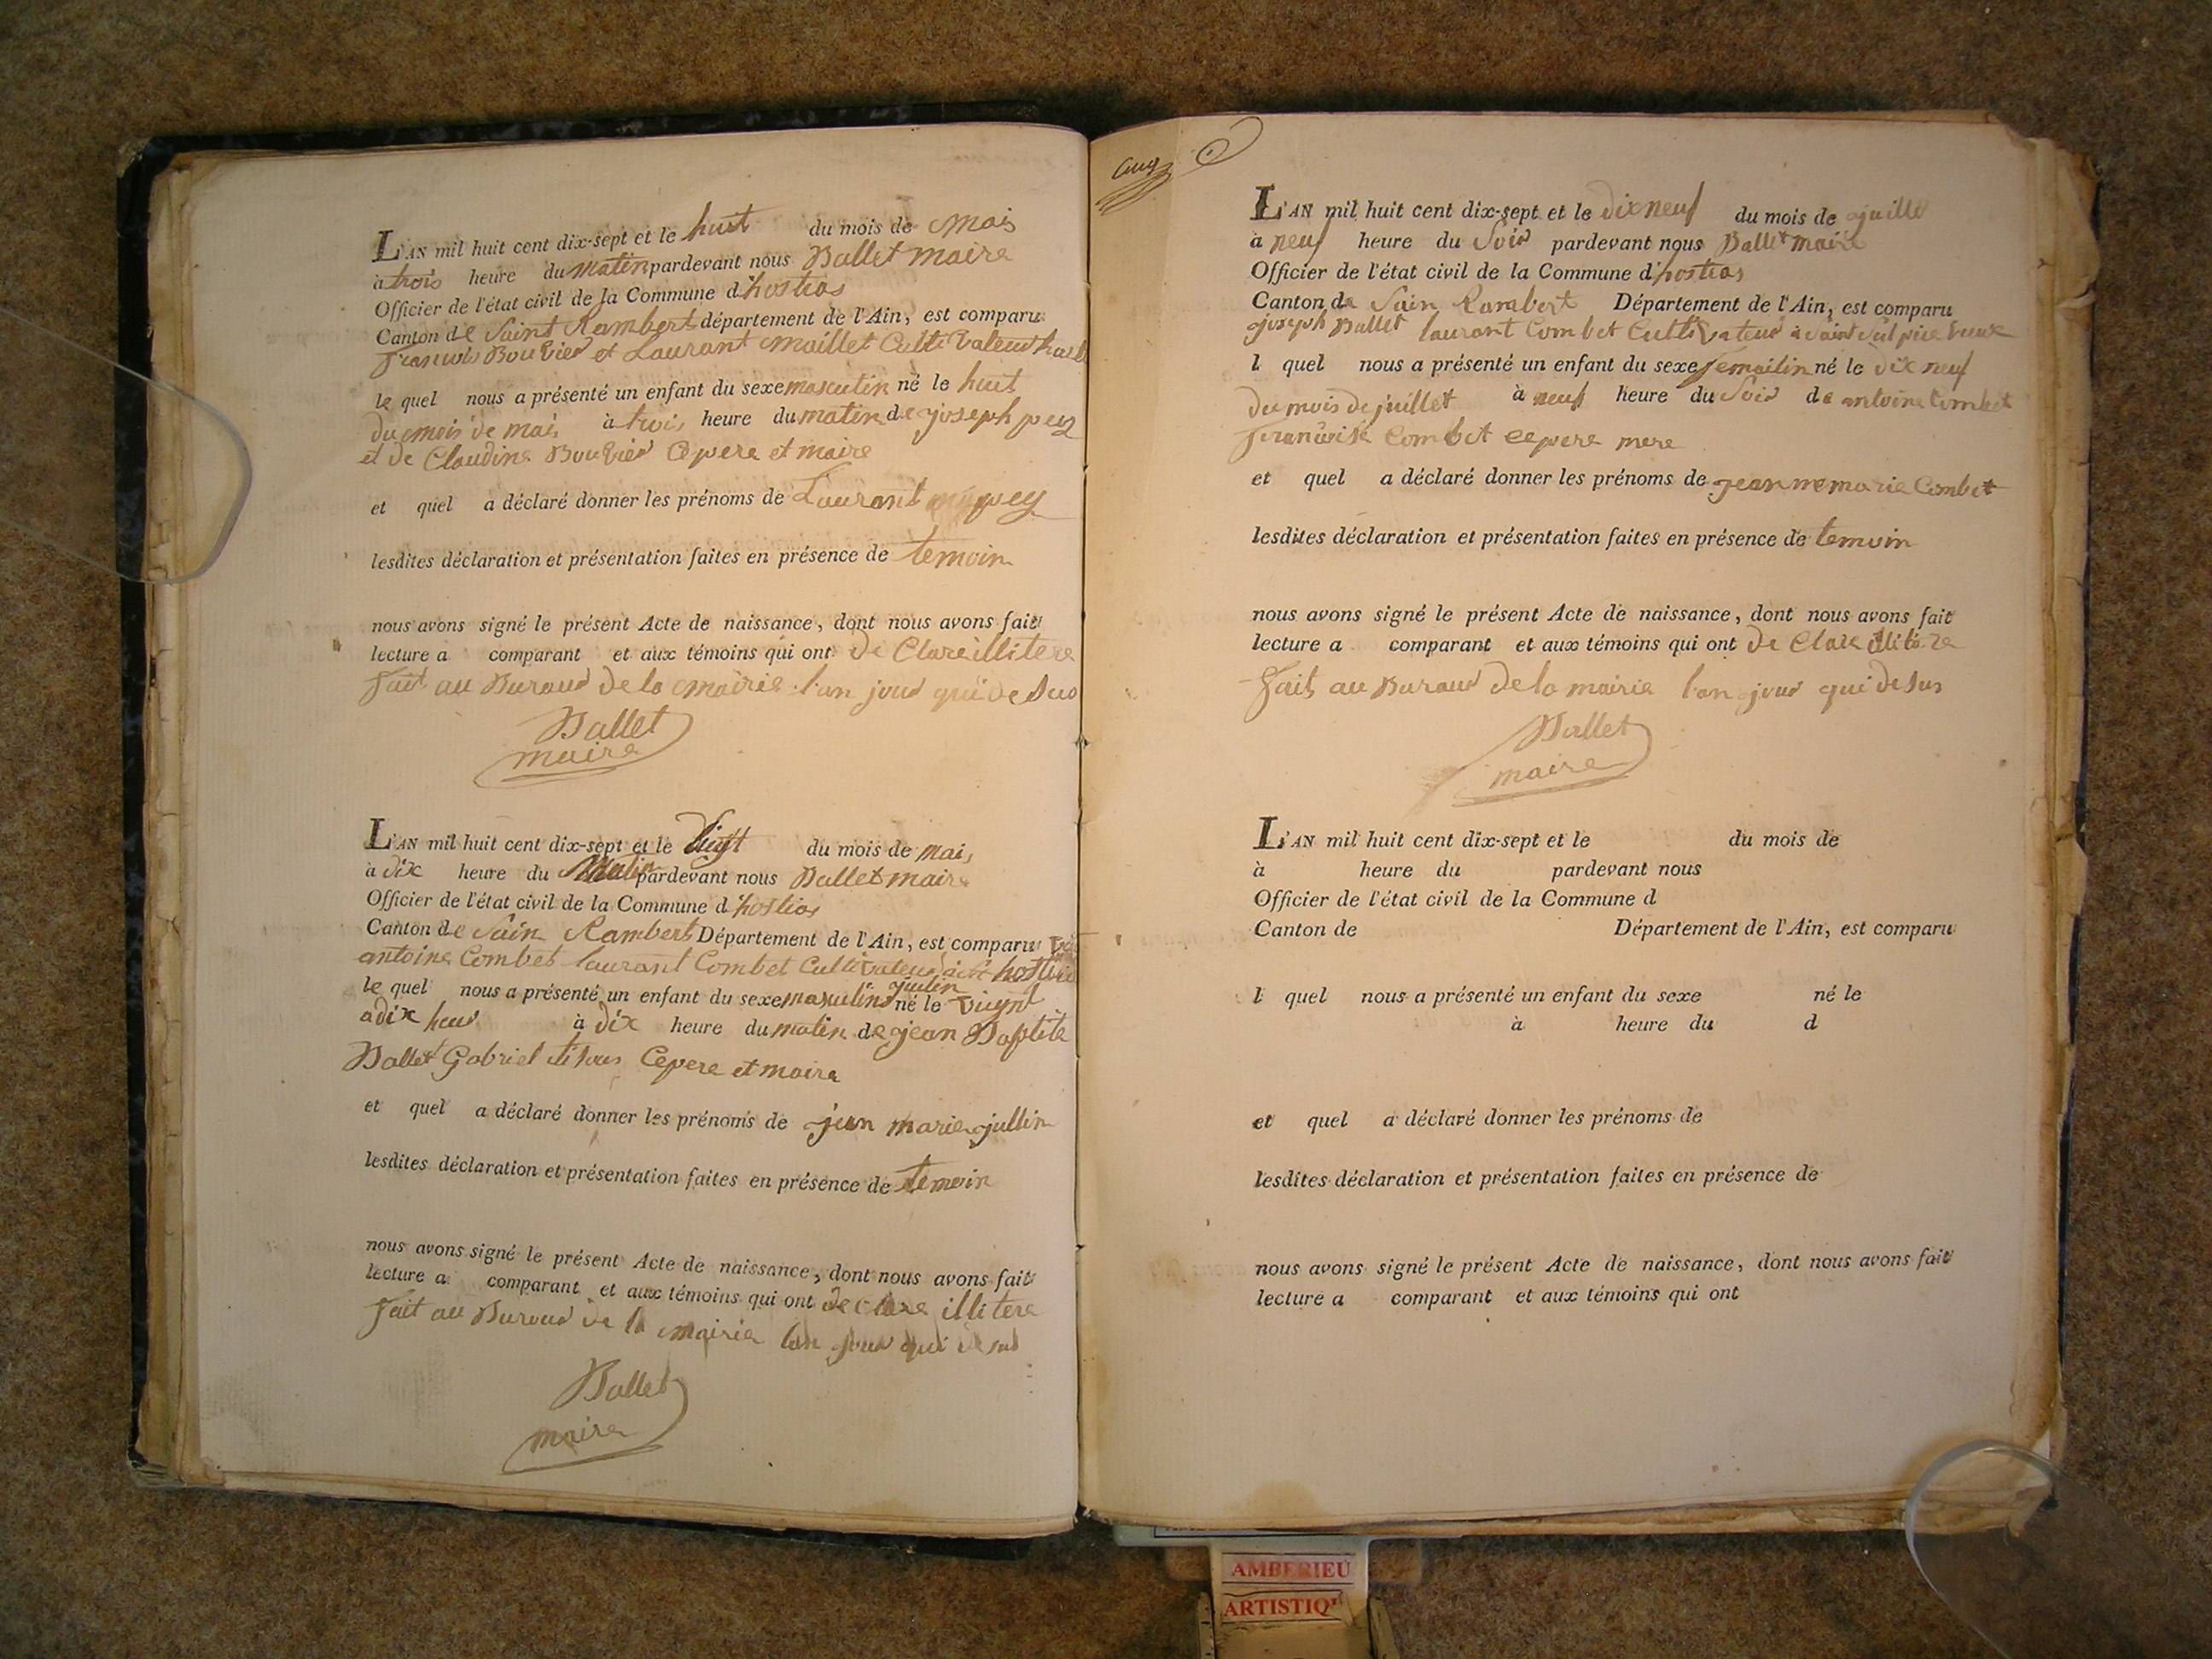 L'AN mil huit cent dix-sept et le huit du mois de mais
à trois heure du matin pardevant nous Ballet maire
Officier de l'état civil de la Commune d hostias
Canton de Saint Rambert département de l'Ain, est comparu
francois Bouvier et Laurant maillet Cultivateur
le quel nous a présenté un enfant du sexe masculin né le huit
du mois de mais à trois heure du matin de joseph pey
et de Claudine Bouvier Ce pere et maire
et quel a déclaré donner les prénoms de Laurant pey
lesdites déclaration et présentation faites en présence de temoin
nous avons signé le présent Acte de naissance, dont nous avons fait
lecture a comparant et aux témoins qui ont de Clare illitere
fait au Buraud de la mairie l'an jour qui de sus
Ballet
maire
L'AN mil huit cent dix-sept et le vingt du mois de mais
à dix heure du Matin pardevant nous Ballet maire
Officier de l'état civil de la Commune d hostias
Canton de Sain Rambert Département de l'Ain, est comparu
antoine Combet laurant Combet Cultivateur
jullin
le quel nous a présenté un enfant du sexe masculin né le vingt
a dix heur à dix heure du matin de jean Baptite
Ballet Gabriel Ce pere et maire
et quel a déclaré donner les prénoms de jean marie jullin
lesdites déclaration et présentation faites en présence de temoin
nous avons signé le présent Acte de naissance, dont nous avons fait
lecture a comparant et aux témoins qui ont de clare illitere
fait au Buraud de la mairie l'an jour qui de sus
Ballet
maire
L'AN mil huit cent dix-sept et le dix neuf du mois de juillet
à neuf heure du Soir pardevant nous Ballet maire
Officier de l'état civil de la Commune d hostias
Canton de Sain Rambert Département de l'Ain, est comparu
joseph Ballet laurant Combet Cultivateur a saint sulpice
l quel nous a présenté un enfant du sexe femailin né le dix neuf
du mois de juillet à neuf heure du Soir de antoine Combet
francoise Combet ce pere mere
et quel a déclaré donner les prénoms de jeanne marie Combet
lesdites déclaration et présentation faites en présence de temoin
nous avons signé le présent Acte de naissance, dont nous avons fait
lecture a comparant et aux témoins qui ont de Clare illitere
fait au Buraud de la mairie l'an jour qui de sus
Ballet
maire
L'AN mil huit cent dix-sept et le du mois de
à heure du pardevant nous
Officier de l'état civil de la Commune d
Canton de Département de l'Ain, est comparu
l quel nous a présenté un enfant du sexe né le
à heure du d
et quel a déclaré donner les prénoms de
lesdites déclaration et présentation faites en présence de
nous avons signé le présent Acte de naissance, dont nous avons fait
lecture a comparant et aux témoins qui ont
AMBERIEU
ARTISTIQ